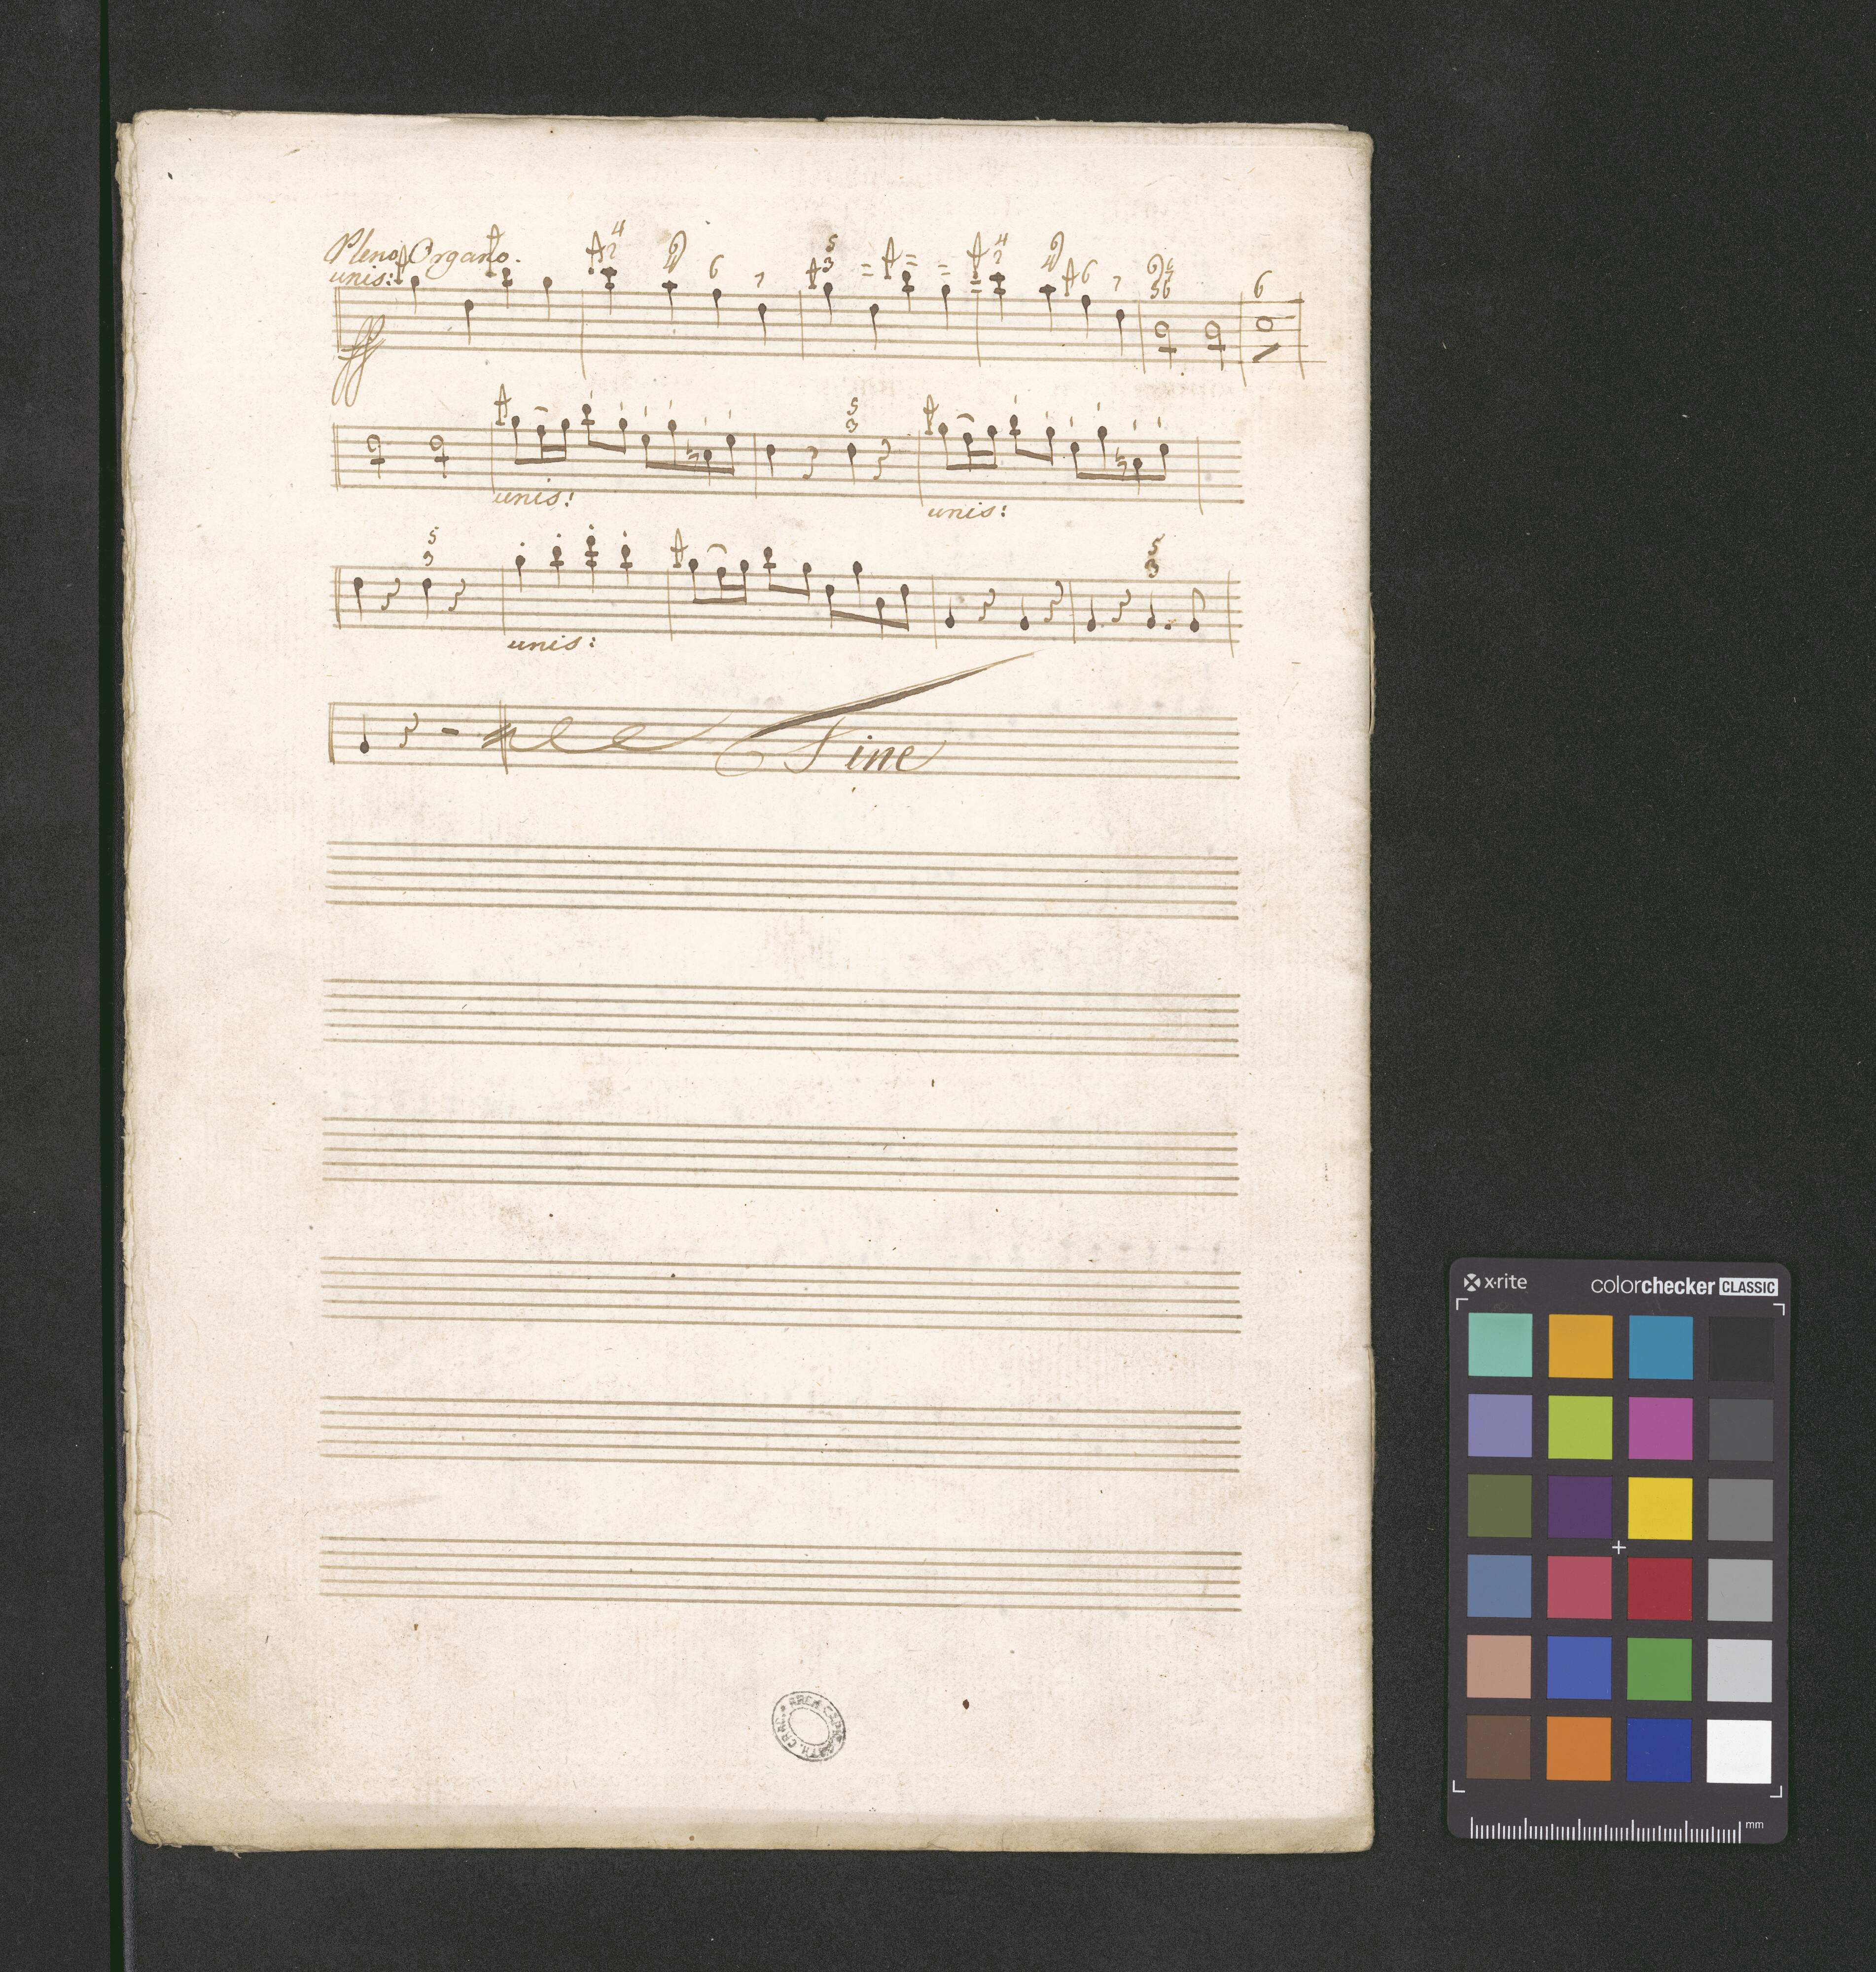 Pleno Organo.
unis:
4
2
6
7
5
3
4
2
6
7
6
ff
unis:
5
3
unis:
5
3
unis:
5
3
Fine
ARCH. CAPIT. CATH. CRAC.
x-rite colorchecker CLASSIC
mm